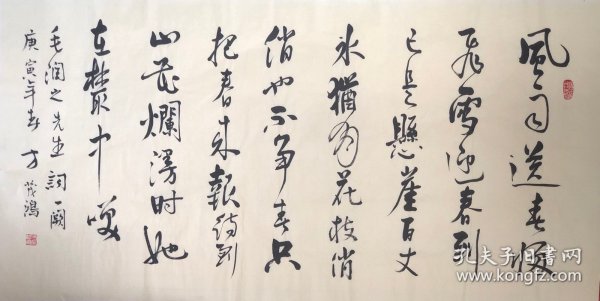 風雨送春歸
飛雪迎春到
已是懸崖百丈
冰猶有花枝俏
俏也不争春只
把春来報待到
山花爛漫時她
在叢中笑
毛润之先生詞一闕
庚寅年春 方茂鴻
孔夫子旧书网
www.kongfz.com